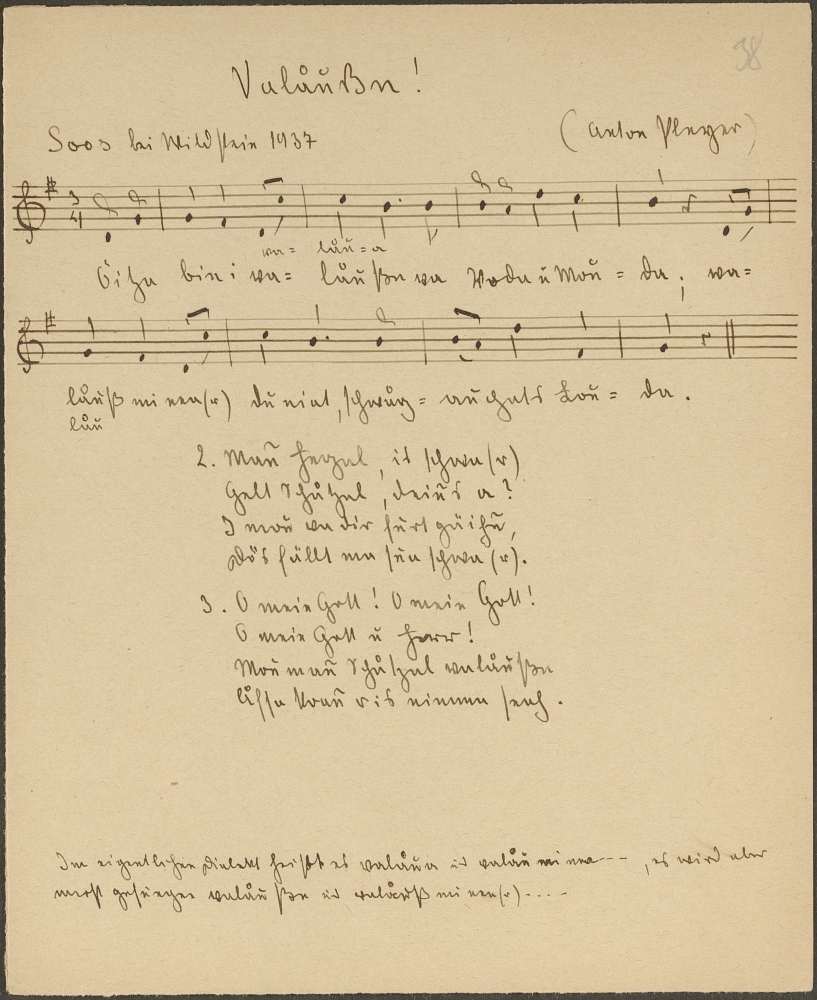 38
Valåußn!
Soos bei Wildstein 1937
(Anton Pleyer)
3
4
va= låu=a
Öitza bin i va= låußn va Voda u Mou = da; va=
låuß mi nea(r) du niat, schwårz = augats Lou = da.
låu
2. Mau Herzal, is schwa(r)
Gelt Schåtzal, deins a?
I mou va dir furt gäih,
Dös fällt ma sua schwa(r).
3. O mein Gott! O mein Gott!
O mein Gott u Herr!
Mou mau Schåtzal valåußn
is nimma
Im eigentlichen Dialekt heißt es valåua u valåu mi nea -- , es wird aber
meist gesungen valåußn u valåuß mi nea(r) ....